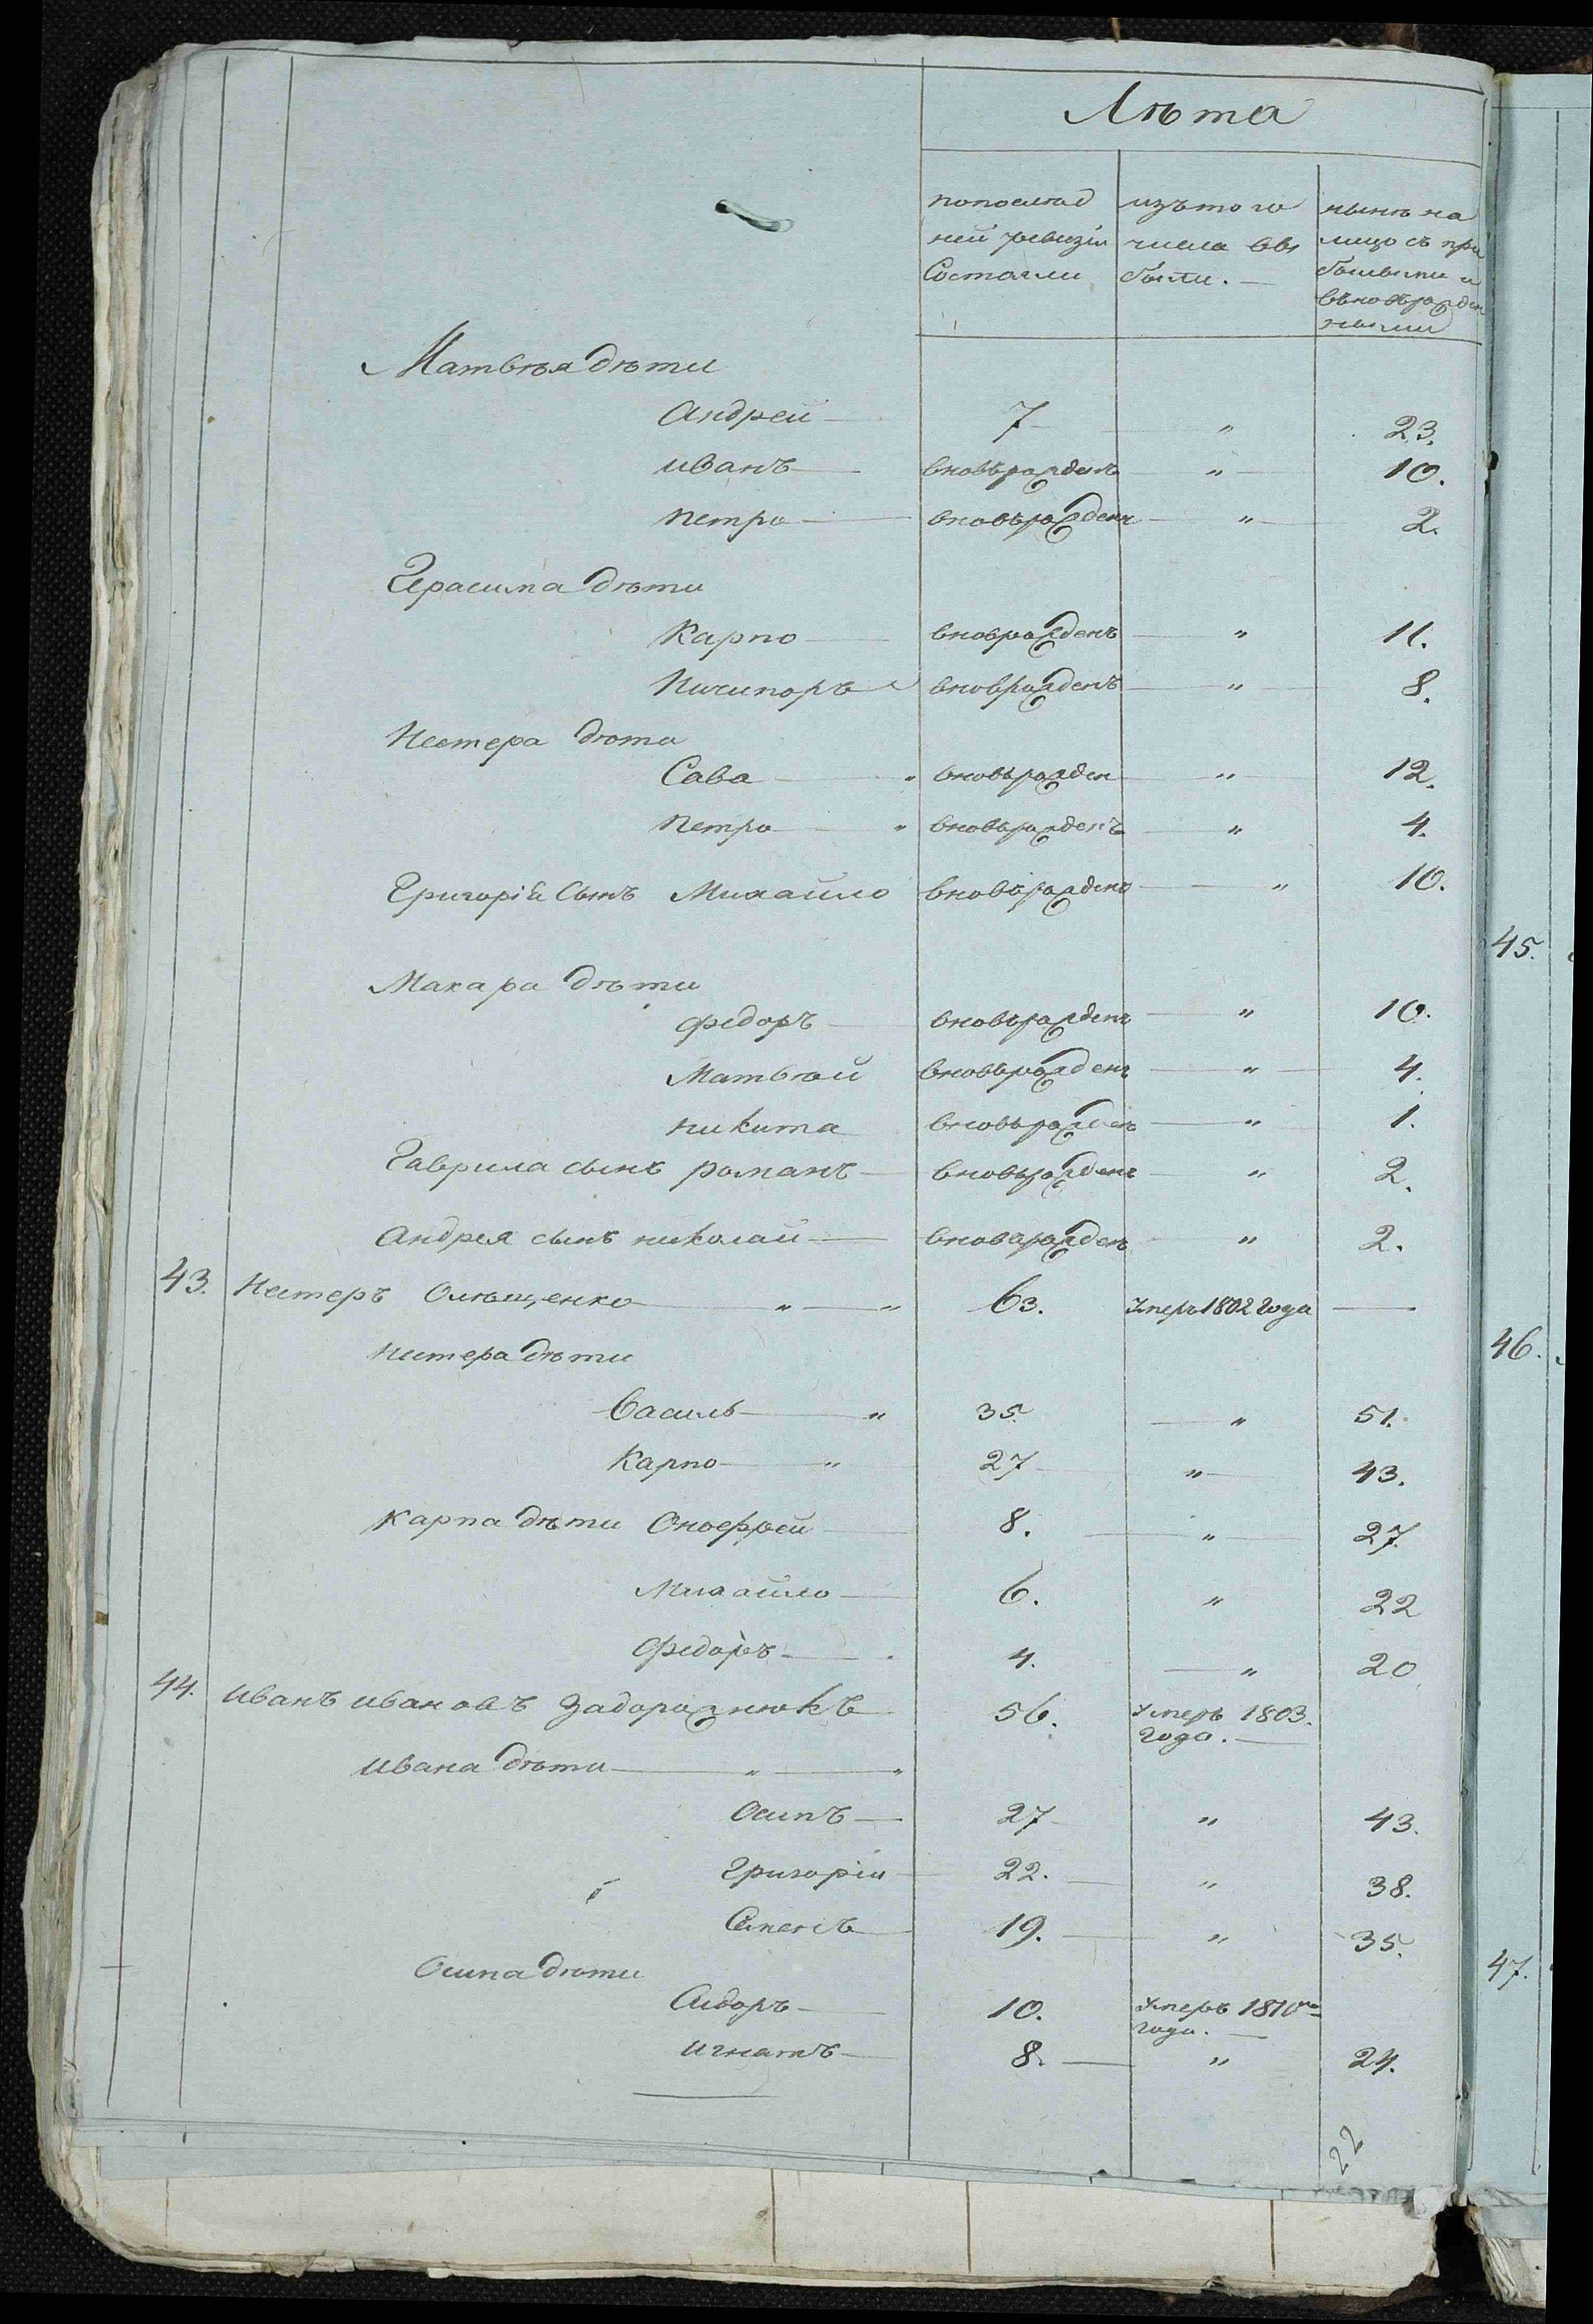 Лѣта
попослѣд изътого нынѣ на
ней ревизіи числа вы лицо съ при
Состояли были. былыми и
вновьрожден
ными
Матвѣя дѣти
Андрей 7 " 23.
иванъ вновьрожденъ " 10.
петро вновьрожденъ " 2.
Герасима дѣти
Карпо вноврожденъ " 11.
Ничипоръ вноврожденъ " 8.
Нестера дѣти
Сава " вновьрожден " 12.
петро " вновьрожденъ " 4.
Григорія Сынъ Михайло вновьрожденъ " 10.
Макара дѣти
федоръ вновьрожденъ " 10.
Матвѣй вновьрожденъ " 4.
никита вновьрожденъ " 1.
Гаврила сынъ романъ вновьрожденъ " 2.
Андрея сынъ николай вноварожденъ " 2.
43. Нестеръ Олѣщенко " " 63. Умеръ 1802 года
нестера дѣти
Василь " 35. " 51.
Карпо " 27 " 43.
карпа дѣти Оноефрей 8. " 27.
Михайло 6. " 22
федоръ 4. " 20
44. иванъ ивановъ Задорожнюкъ 56. Умеръ 1803.
года.
ивана дѣти " "
Осипъ 27 " 43.
Григорій 22. " 38.
Семенъ 19. " 35.
Осипа дѣти
Сидоръ 10. Умеръ 1810го
года.
игнатъ 8. " 24.
22
45.
46.
47.